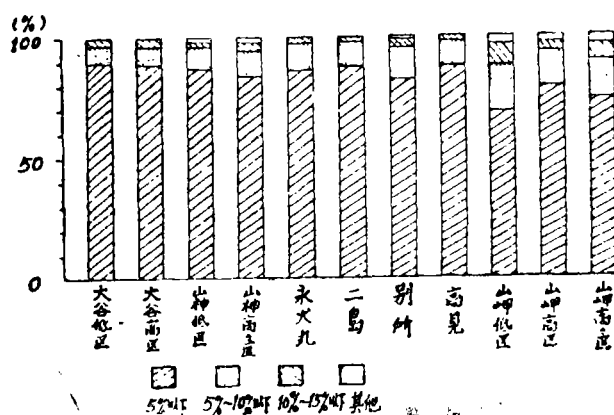 (%)
100
50
0
大谷低区
大谷高区
山神低区
山神高区
永犬丸
二島
別所
高見
山岬低区
山岬高区
山岬高区
5%以下 5%~10%以下 10%~15%以下 其他